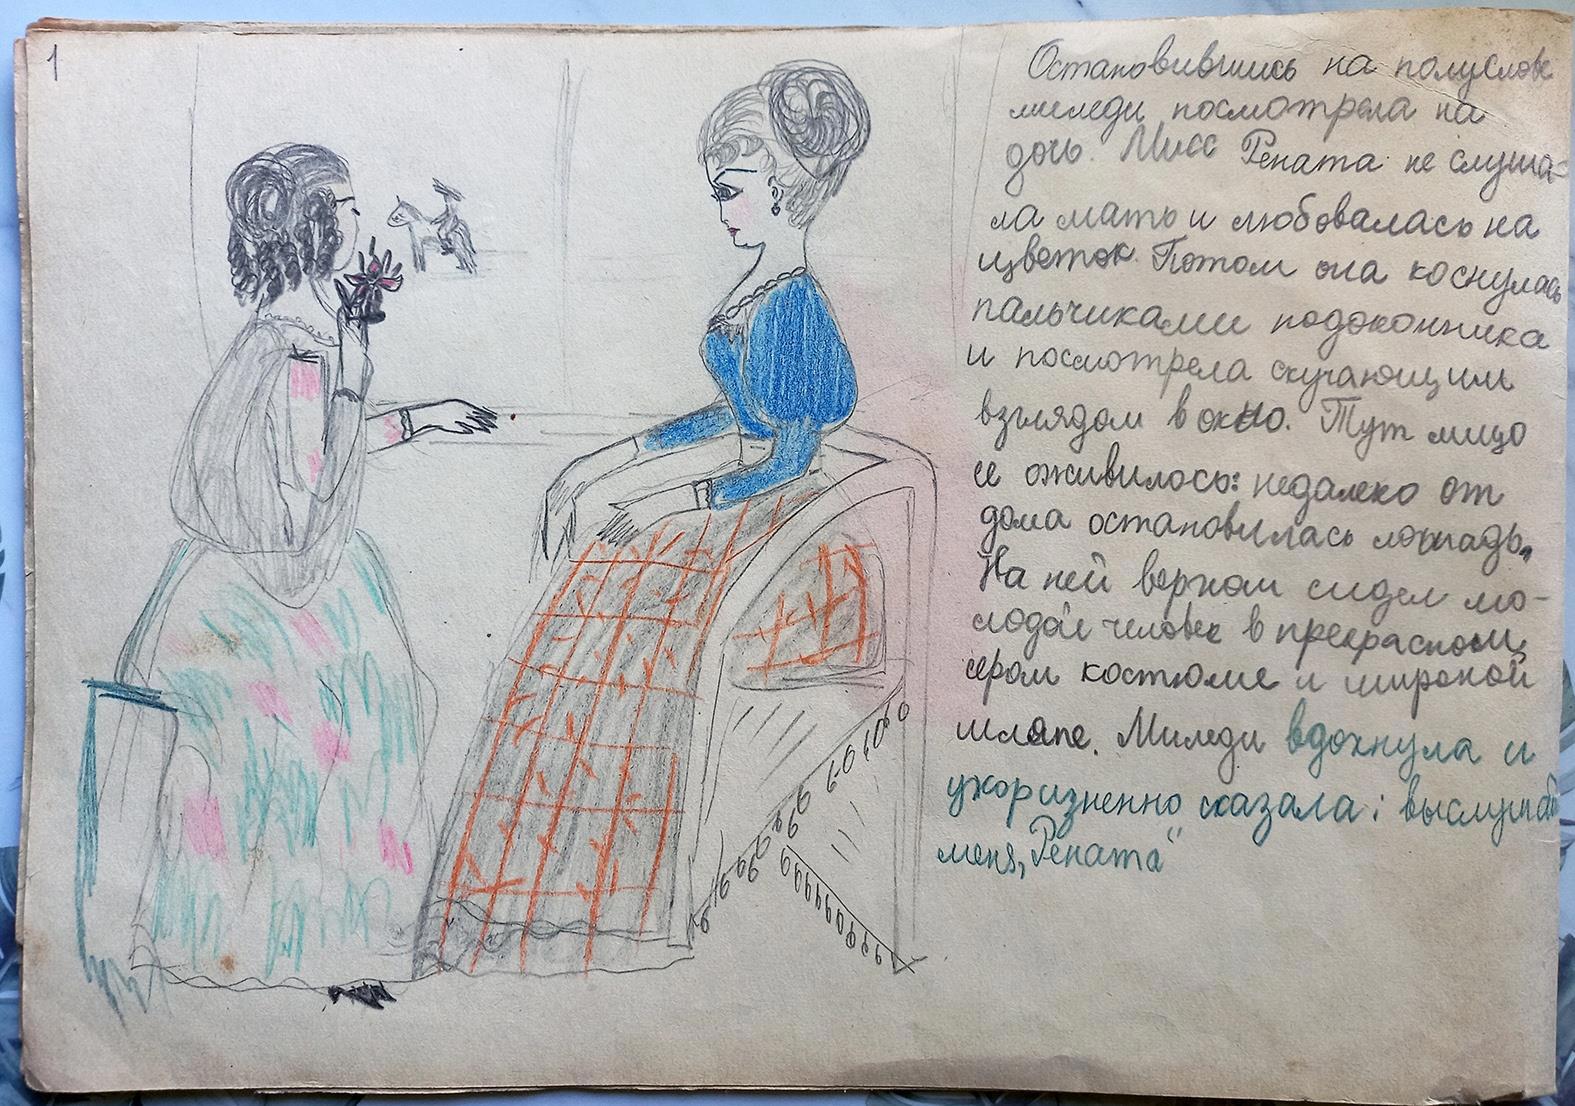 1
Остановившись на полуслове
миледи посмотрела на
дочь. Мисс Рената не слуша-
ла мать и любовалась на
цветок. Потом она коснулась
пальчиками подоконника
и посмотрела скучающим
взглядом в окно. Тут лицо
ее оживилось: недалеко от
дома остановилась лошадь.
На ней верхом сидел мо-
лодой человек в прекрасном,
сером костюме и широкой
шляпе. Миледи вдохнула и
укоризненно сказала: выслушай
меня, Рената"